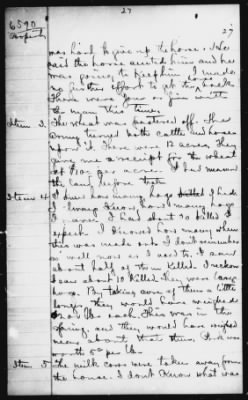 27
6590
27
was hard to give up the horse. He
said the horse suited him and he
was going to keep him. I made
no further effort to get them back.
There were four or five with
the many this time.
Item 3. The wheat was pastured off. The
army turned both cattle and horses
upon it. There were 12 acres. They
give me a receipt for the wheat
at $10 per acre. I had measured
the land before that.
Item 4. I know how many hogs I had
I have. I had about 20 killed I
expect. I showed how many when
this was made out. I don't remember
as well now as I used to. I saw
about half of them killed. I reckon
I saw about 10 killed. They were large
hogs. By taking care of them a little
longer they would have weighed
200 lbs each. This was in the
Spring, and they would have weighed
means about that then. Pork was
worth 5¢ per lb.
Item 5. The milk cows were taken away from
the house. I don't know what was